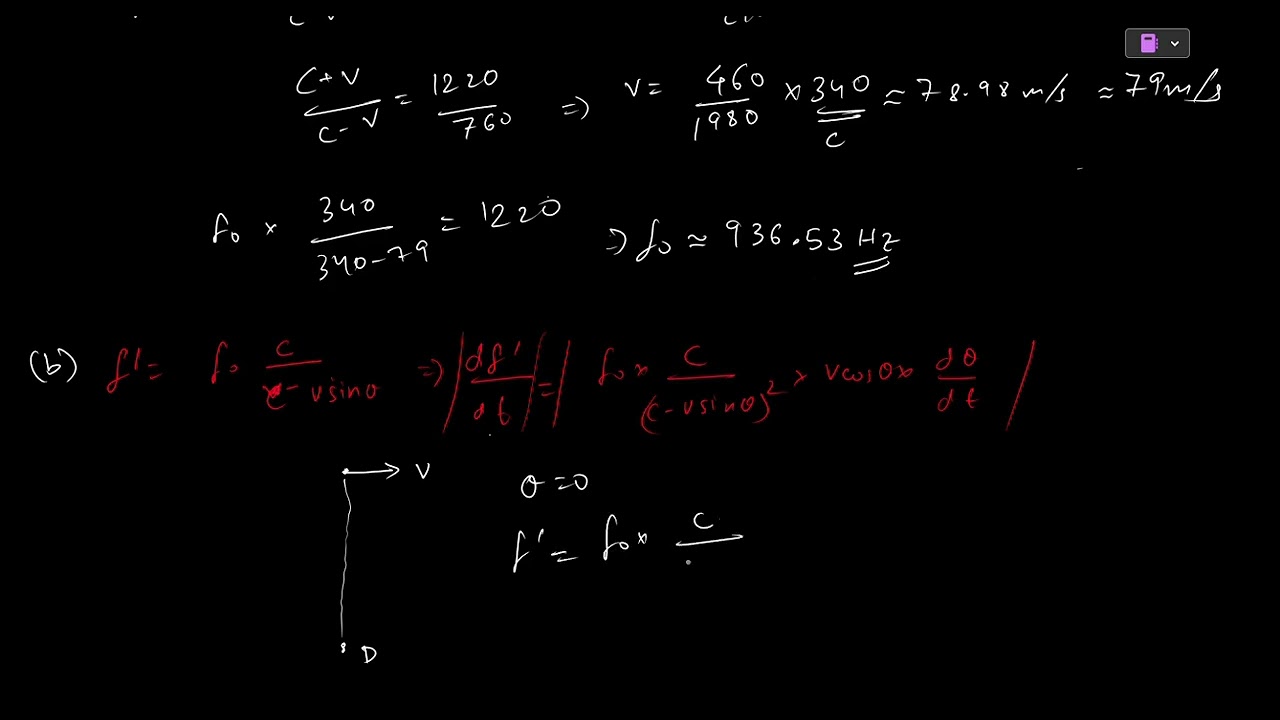 (c+v)/(c-v) = 1220/760 => v = 460/1980 × 340 ≈ 78.98 m/s ≈ 79 m/s
c
f₀ × 340/(340-79) = 1220 => f₀ ≈ 936.53 Hz
(b) f' = f₀ c/(c - v sinθ) => |df'/dt| = |f₀ × c/(c - v sinθ)² × v cosθ × dθ/dt|
v
θ = 0
f' = f₀ × c/
D